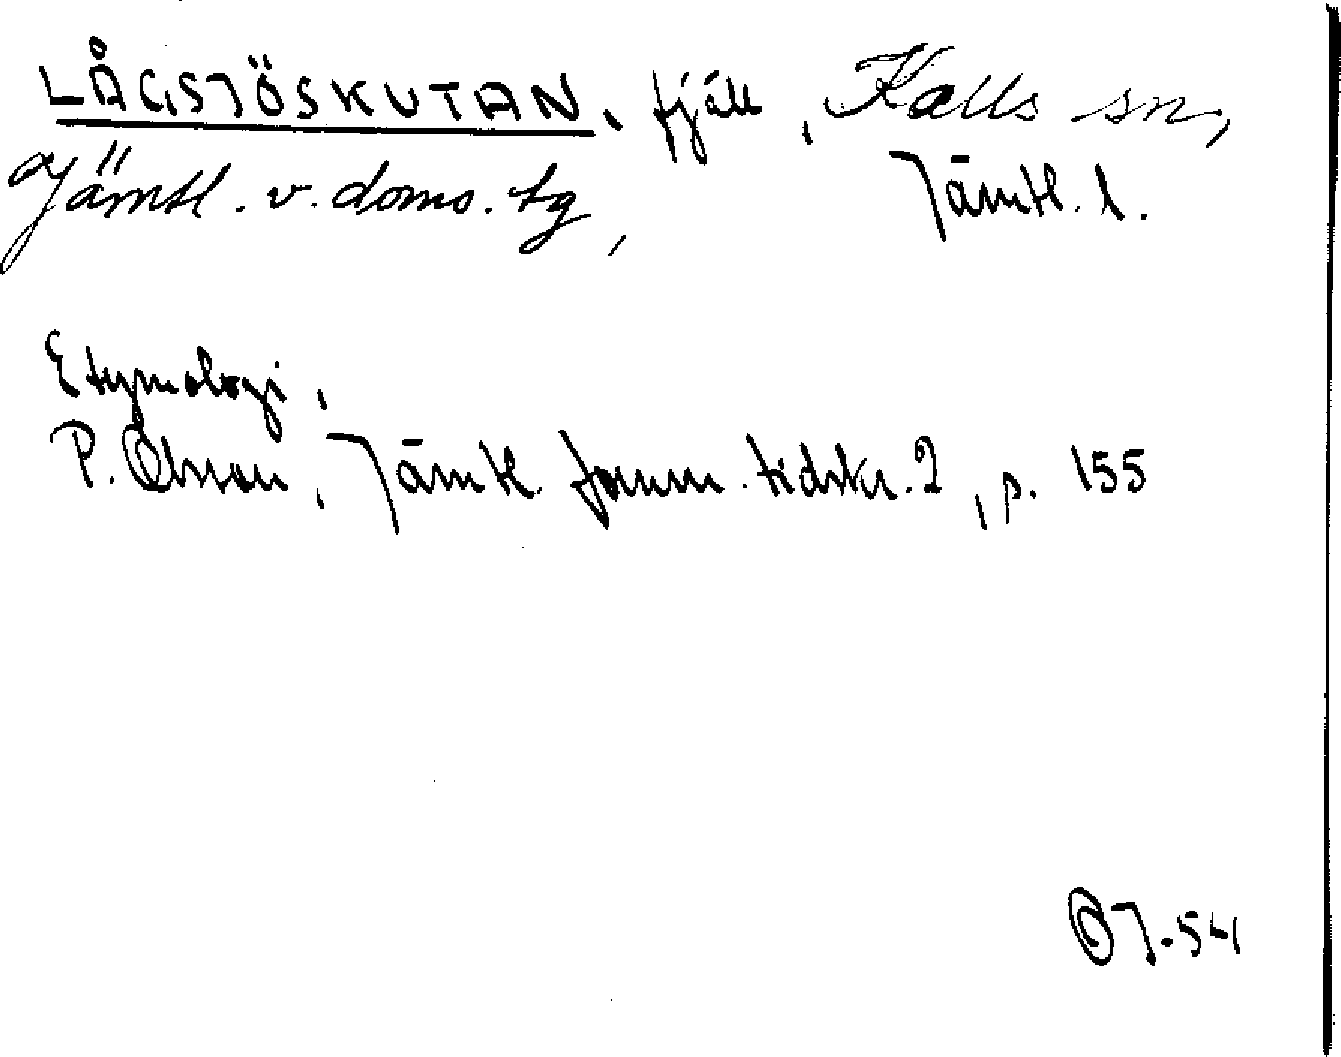 LÅGSJÖSKUTAN, fjäll, Kalls sn,
Jämtl. v. doms. tg, Jämtl. l.
Etymologi,
P. Olsson, Jämtl. fornm. tidskr. 2, p. 155
OJ-54